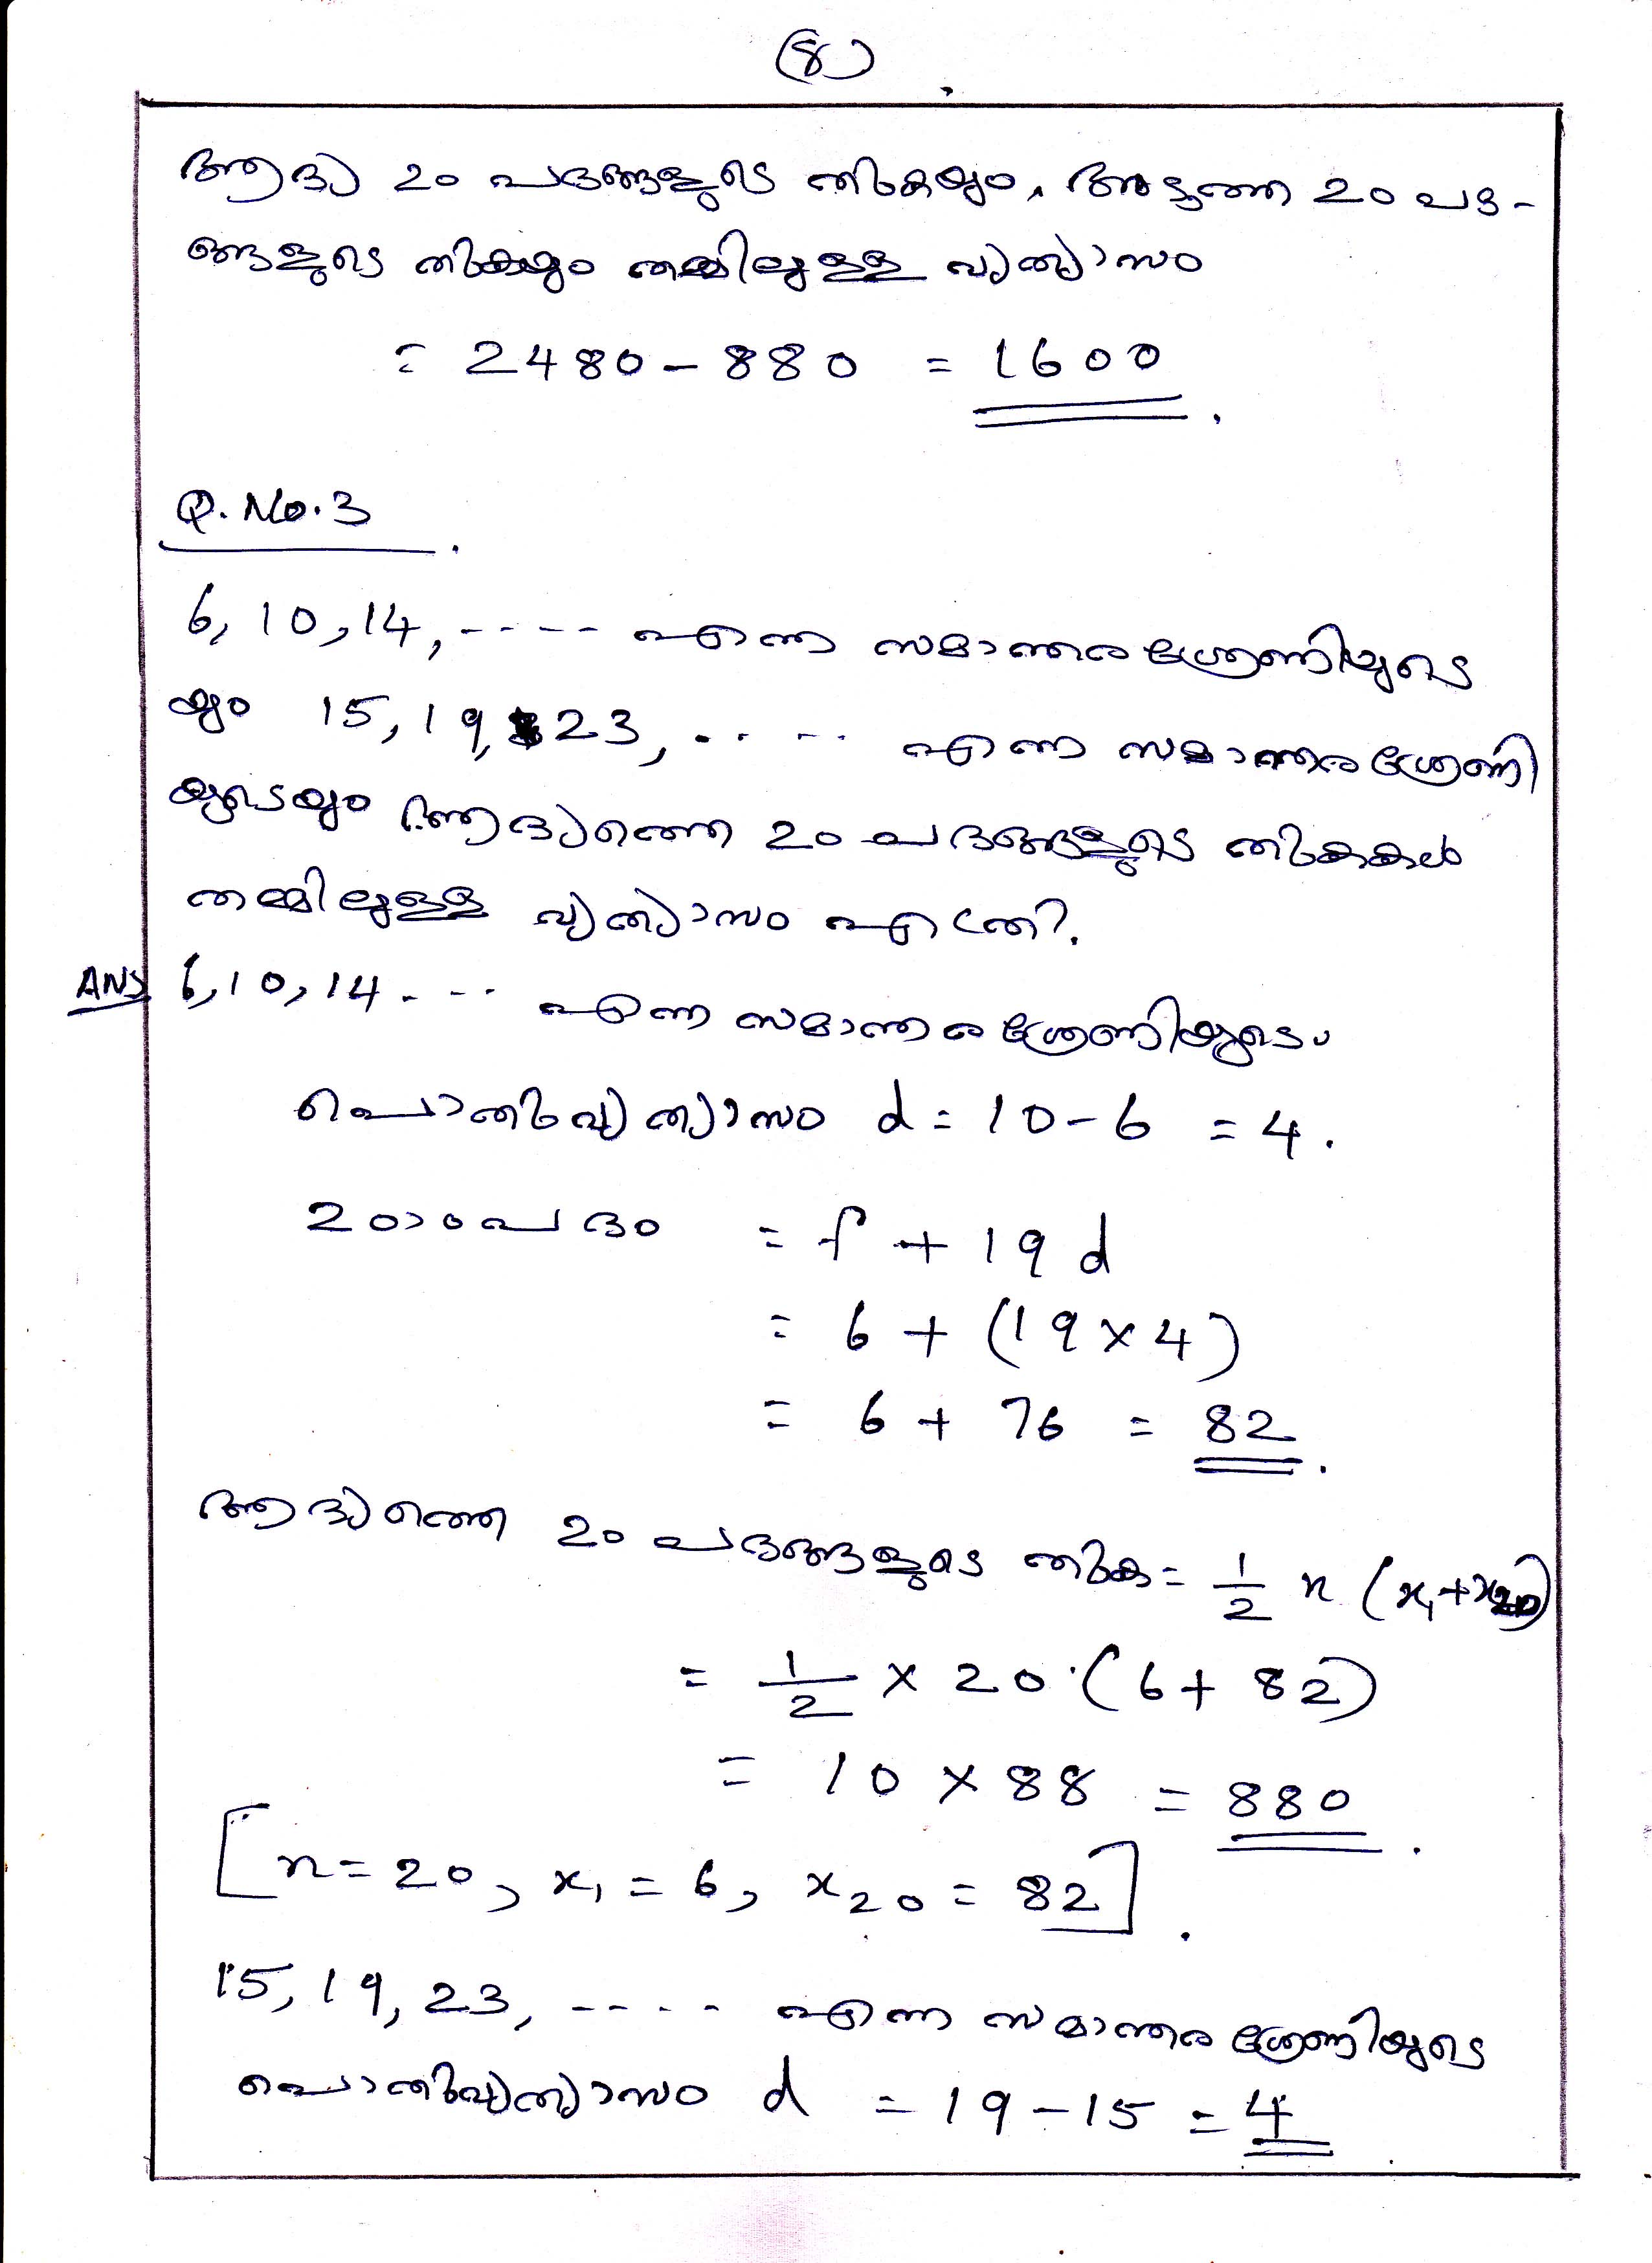 (8)
ആദ്യ 20 പദങ്ങളുടെ തുകയും, അടുത്ത 20 പദ-
ങ്ങളുടെ തുകയും തമ്മിലുള്ള വ്യത്യാസം
= 2480 - 880 = 1600.
Q. No. 3.
6, 10, 14, ---- എന്ന സമാന്തരശ്രേണിയുടെ
യും 15, 19, 23, ..... എന്ന സമാന്തരശ്രേണി
യുടെയും ആദ്യത്തെ 20 പദങ്ങളുടെ തുകകൾ
തമ്മിലുള്ള വ്യത്യാസം എത്ര?
ANS 6, 10, 14 - -- എന്ന സമാന്തരശ്രേണിയുടെ
പൊതുവ്യത്യാസം d = 10 - 6 = 4.
20ാംപദം = f + 19 d
= 6 + (19 × 4)
= 6 + 76 = 82.
ആദ്യത്തെ 20 പദങ്ങളുടെ തുക = 1/2 n (x₁ + x₂₀)
= 1/2 × 20 (6 + 82)
= 10 × 88 = 880.
[n = 20, x₁ = 6, x₂₀ = 82].
15, 19, 23, ---- എന്ന സമാന്തരശ്രേണിയുടെ
പൊതുവ്യത്യാസം d = 19 - 15 = 4